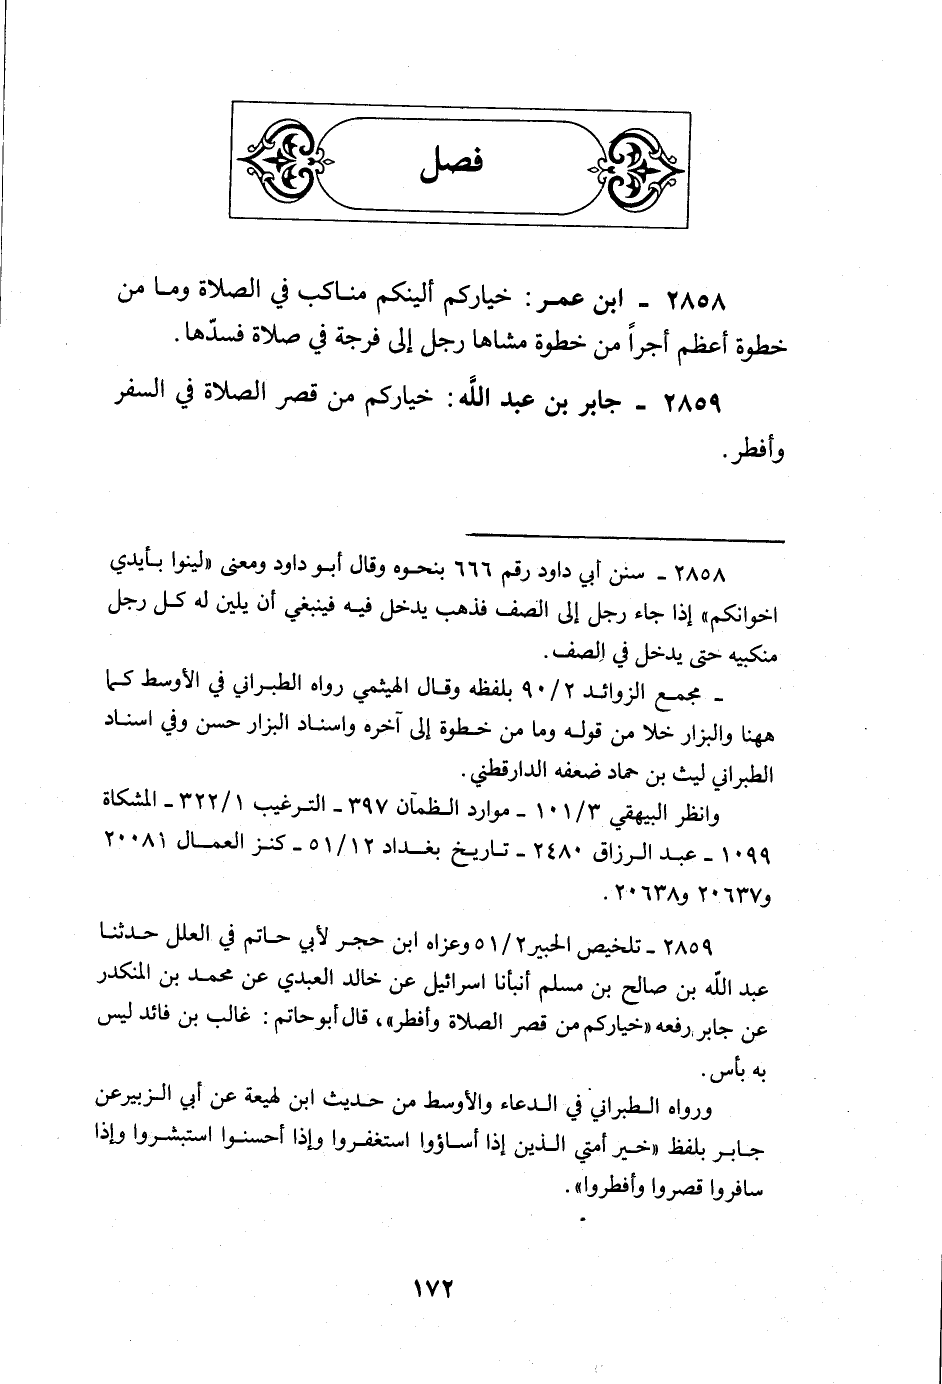 فصل
٢٨٥٨ ـ ابن عمر : خياركم ألينكم مناكب في الصلاة وما من
خطوة أعظم أجراً من خطوة مشاها رجل إلى فرجة في صلاة فسدّها .
٢٨٥٩ ـ جابر بن عبد اللَّه : خياركم من قصر الصلاة في السفر
وأفطر .
٢٨٥٨ ـ سنن أبي داود رقم ٦٦٦ بنحوه وقال أبو داود ومعنى «لينوا بأيدي
اخوانكم» إذا جاء رجل إلى الصف فذهب يدخل فيه فينبغي أن يلين له كل رجل
منكبيه حتى يدخل في الصف .
ـ مجمع الزوائد ٩٠/٢ بلفظه وقال الهيثمي رواه الطبراني في الأوسط كما
ههنا والبزار خلا من قوله وما من خطوة إلى آخره واسناد البزار حسن وفي اسناد
الطبراني ليث بن حماد ضعفه الدارقطني .
وانظر البيهقي ١٠١/٣ ـ موارد الظمآن ٣٩٧ ـ الترغيب ٣٢٢/١ ـ المشكاة
١٠٩٩ ـ عبد الرزاق ٢٤٨٠ ـ تاريخ بغداد ٥١/١٢ ـ كنز العمال ٢٠٠٨١
و٢٠٦٣٧ و٢٠٦٣٨ .
٢٨٥٩ ـ تلخيص الحبير ٥١/٢ وعزاه ابن حجر لأبي حاتم في العلل حدثنا
عبد اللّه بن صالح بن مسلم أنبأنا اسرائيل عن خالد العبدي عن محمد بن المنكدر
عن جابر رفعه «خياركم من قصر الصلاة وأفطر» ، قال أبو حاتم : غالب بن فائد ليس
به بأس .
ورواه الطبراني في الدعاء والأوسط من حديث ابن لهيعة عن أبي الزبير عن
جابر بلفظ «خير أمتي الذين إذا أساؤوا استغفروا وإذا أحسنوا استبشروا وإذا
سافروا قصروا وأفطروا» .
١٧٢